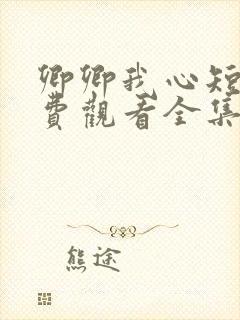 卿卿我心短
費觀看全集
熊途